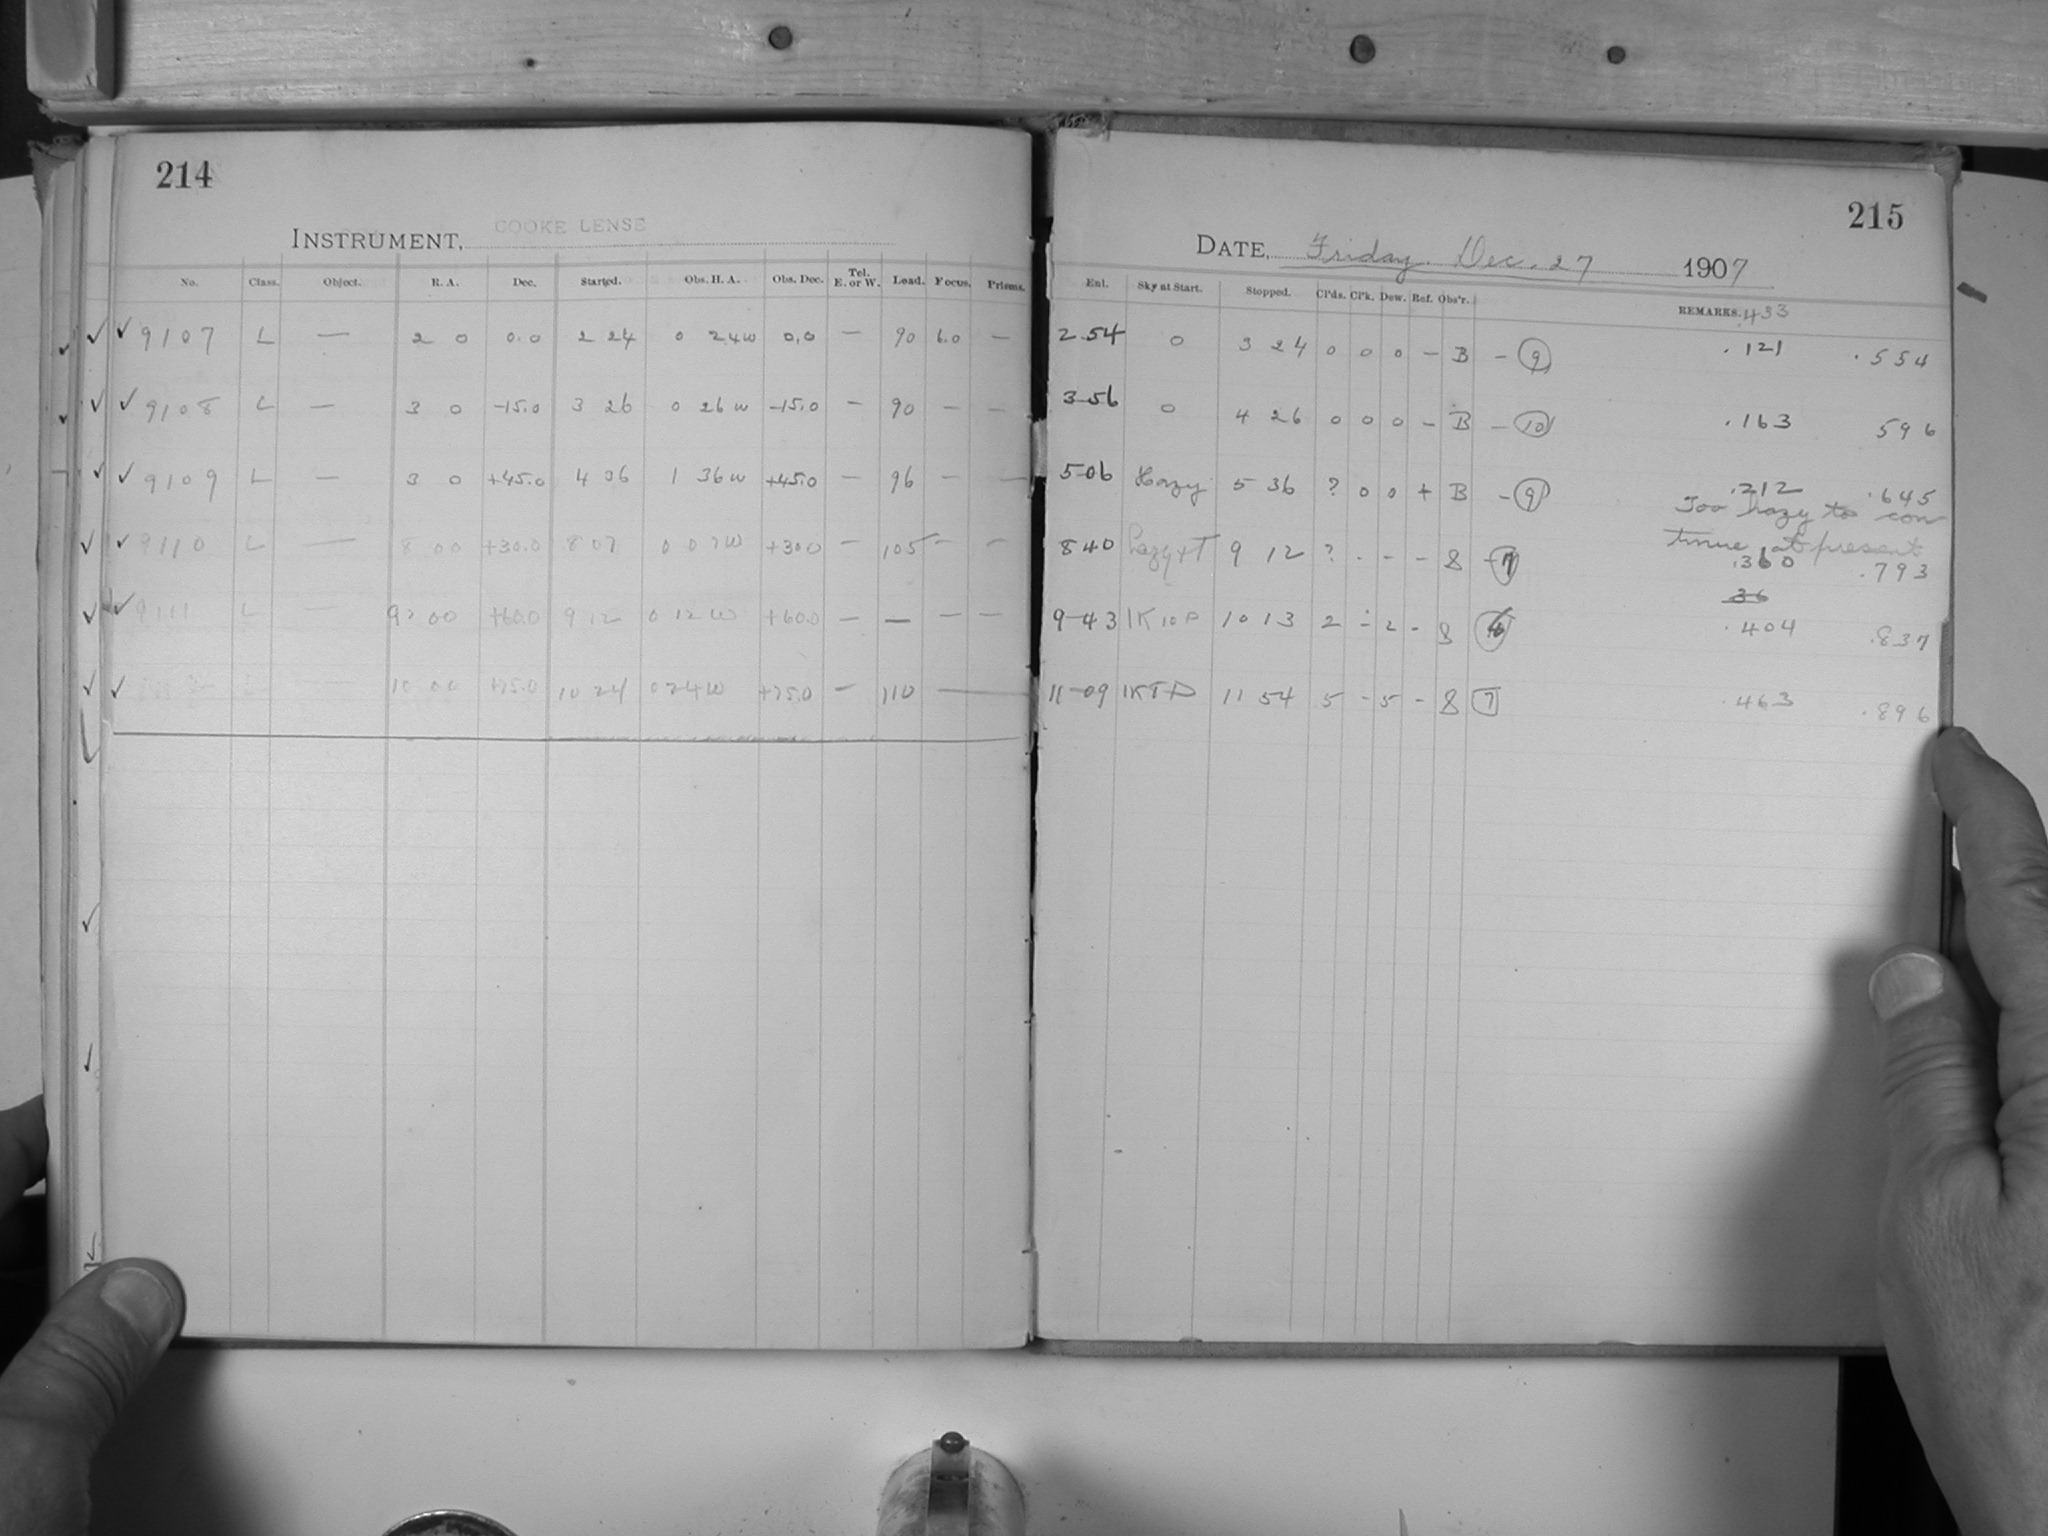 214
COOKE LENSE
INSTRUMENT,
No. Class. Object. R. A. Dec. Started. Obs. H. A. Obs. Dec. Tel. E. or W. Load. Focus. Prisms.
✓ ✓ 9107 L — 2 0 0.0 2 24 0 24W 0.0 — 90 6.0 —
✓ ✓ 9108 L — 3 0 -15.0 3 26 0 26W -15.0 — 90 — —
✓ ✓ 9109 L — 3 0 +45.0 4 36 1 36W +45.0 — 96 — —
✓ ✓ 9110 L — 8 00 +30.0 8 07 0 07W +30.0 — 105 — —
✓ ✓ 9111 L — 9 00 +60.0 9 12 0 12W +60.0 — — — —
✓ ✓ L — 10 00 +75.0 10 24 0 24W +75.0 — 110 —
215
DATE, Friday. Dec. 27 1907
Ent. Sky at Start. Stopped. Cl'ds. Cl'k. Dew. Ref. Obs'r. REMARKS. .433
2-54 0 3 24 0 0 0 — B — 9 .121 .554
3-56 0 4 26 0 0 0 — B — 10 .163 596
5-06 Hazy 5 36 ? 0 0 + B — 9 .212 .645
Too hazy to con
tinue at present
8 40 hazy+T 9 12 ? - - - 8 - 7 .360 .793
36
9-43 1K10P 10 13 2 - 2 - 8 .404 .837
11-09 1KTP 11 54 5 - 5 - 8 7 .463 .896